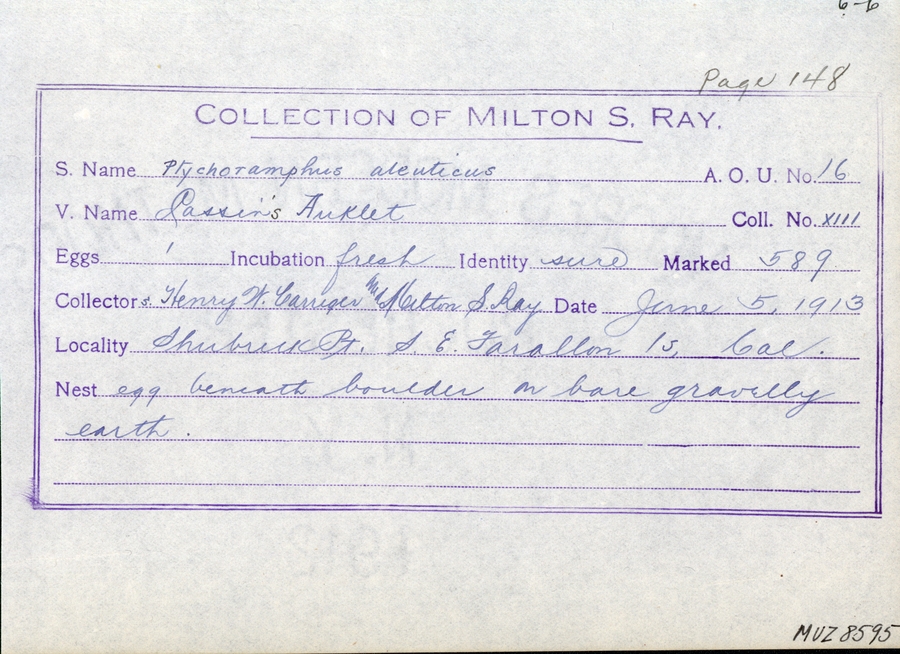 6-6
Page 148
COLLECTION OF MILTON S. RAY.
S. Name Ptychoramphus aleuticus A. O. U. No. 16
V. Name Cassin's Auklet Coll. No. XIII
Eggs 1 Incubation fresh Identity sure Marked 589
Collectors. Henry W. Carriger and Milton S. Ray Date June 5, 1913
Locality Shubrick Pt. S. E. Farallon Is, Cal.
Nest egg beneath boulder on bare gravelly
earth.
MVZ 8595